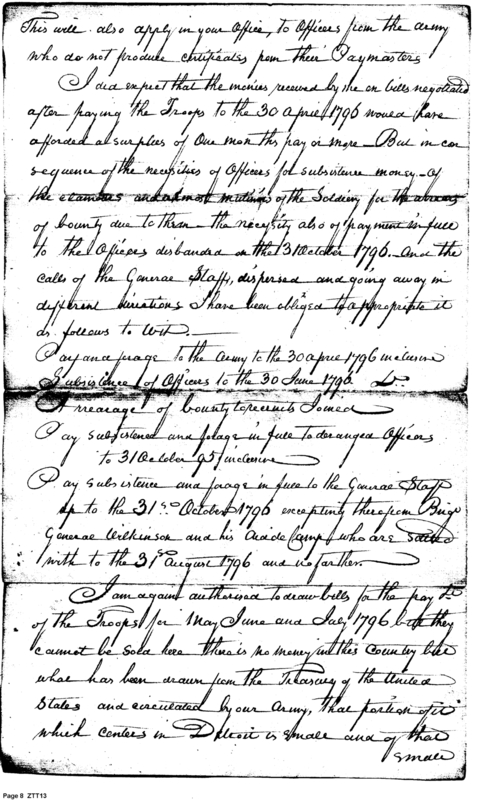 This will also apply in your Office, to Officers from the army
who do not produce certificates from their Paymasters
I did expect that the monies, received by me on bills negotiated
after paying the Troops to the 30 April 1796 would have
afforded a surpless of One months pay or more – But in con
sequence of the necessities of Officers for subsistence money – Of
the and almost of the Soldiery for the arrears
of bounty due to them – the necessity also of payment in full
to the Officers disbanded on the 31 October 1796 – And the
calls of the General Staff, dispersed and going away in
different directions I have been obliged to appropriate it
as follows to Wit –
Pay and forage to the Army to the 30 April 1796 inclusive
Subsistence of Officers to the 30 June 1796 Do
Arrearage of bounty to recruits Joined
Pay subsistence and forage in full to deranged Officers
to 31 October 95 inclusive
Pay subsistence and forage in full to the General Staff
up to the 31st October 1796 excepting therefrom Brigr
General Wilkinson and his Aid de Camp who are settled
with to the 31st August 1796 and no farther
I am again authorised to draw bills for the pay &c
of the Troops for May June and July 1796 but they
cannot be sold here there is no money in this Country but
what has been drawn from the Treasury of the United
States and circulated by our Army, that portion of it
which centers in Detroit is small and of that
small
Page 8 ZTT13